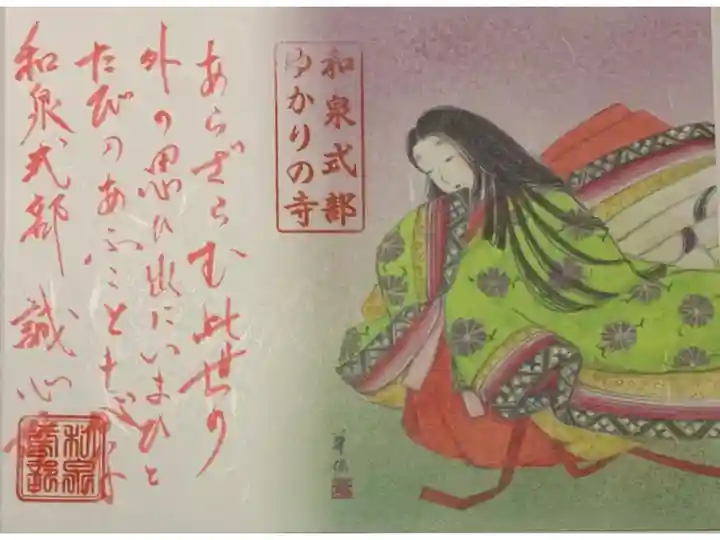 和泉式部
ゆかりの寺
あらざらむ此世の
外の思ひ出にいまひと
たびのあふこともがな
和泉式部 誠心